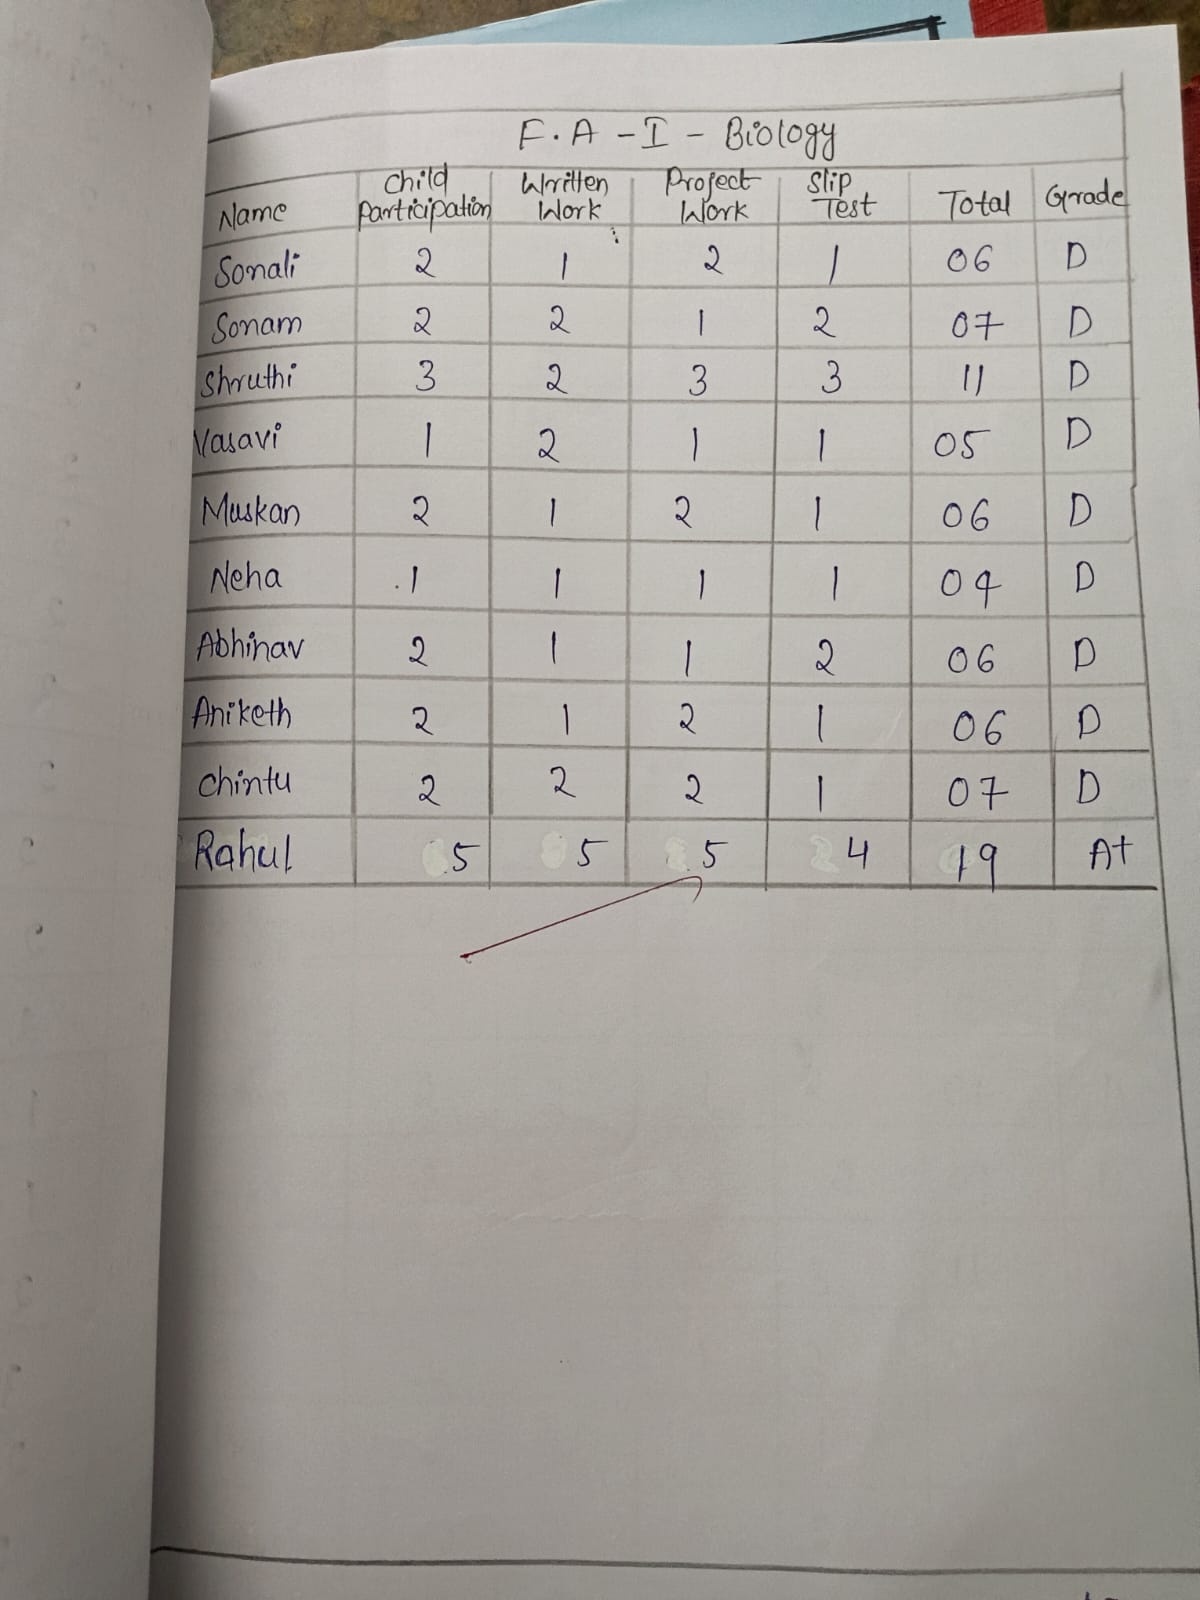 F.A - I - Biology
Name Child Participation Written Work Project Work Slip Test Total Grade
Sonali 2 1 2 1 06 D
Sonam 2 2 1 2 07 D
Shruthi 3 2 3 3 11 D
Vasavi 1 2 1 1 05 D
Muskan 2 1 2 1 06 D
Neha 1 1 1 1 04 D
Abhinav 2 1 1 2 06 D
Aniketh 2 1 2 1 06 D
Chintu 2 2 2 1 07 D
Rahul 5 5 5 4 19 A+